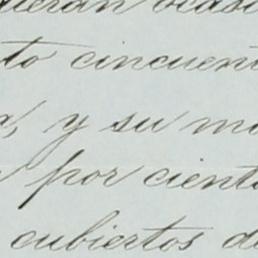 ocasi
to cincuent
y su m
por cient
cubiertos d